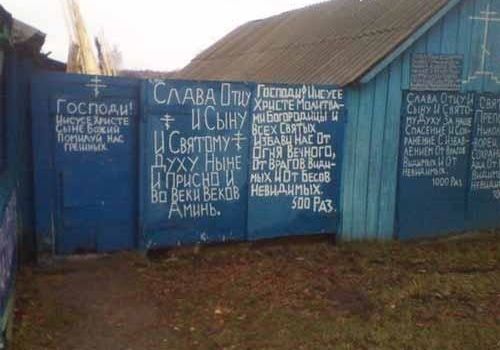 Господи!
Иисусе Христе
Сыне Божий
Помилуй нас
грешных.
Слава Отцу
И Сыну
И Святому
Духу Ныне
И Присно И
Во Веки Веков
Аминь.
Господи! Иисусе
Христе Молитва-
ми Богородицы И
Всех Святых
Избави нас От
Огня Вечного,
От врагов Види-
мых И От Бесов
Невидимых.
500 Раз.
Слава Отцу
И Сыну И Свято
му Духу За наше
Спасение И Сох
ранение С Избав
лением От Врагов
Видимых И От
Невидимых.
1000 Раз.